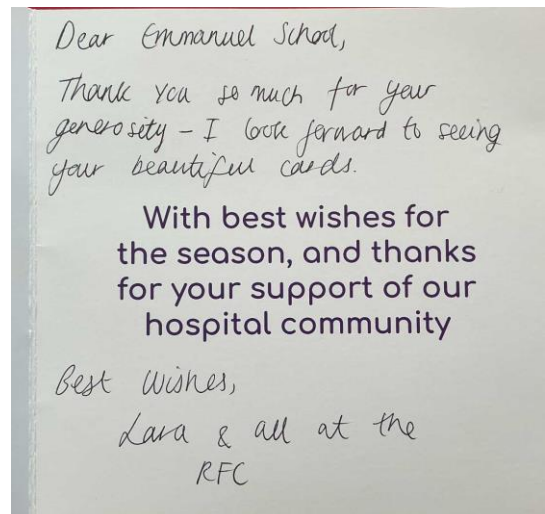 Dear Emmanuel School,
Thank you so much for your
generosity – I look forward to seeing
your beautiful cards.
With best wishes for
the season, and thanks
for your support of our
hospital community
Best Wishes,
Lara & all at the
RFC